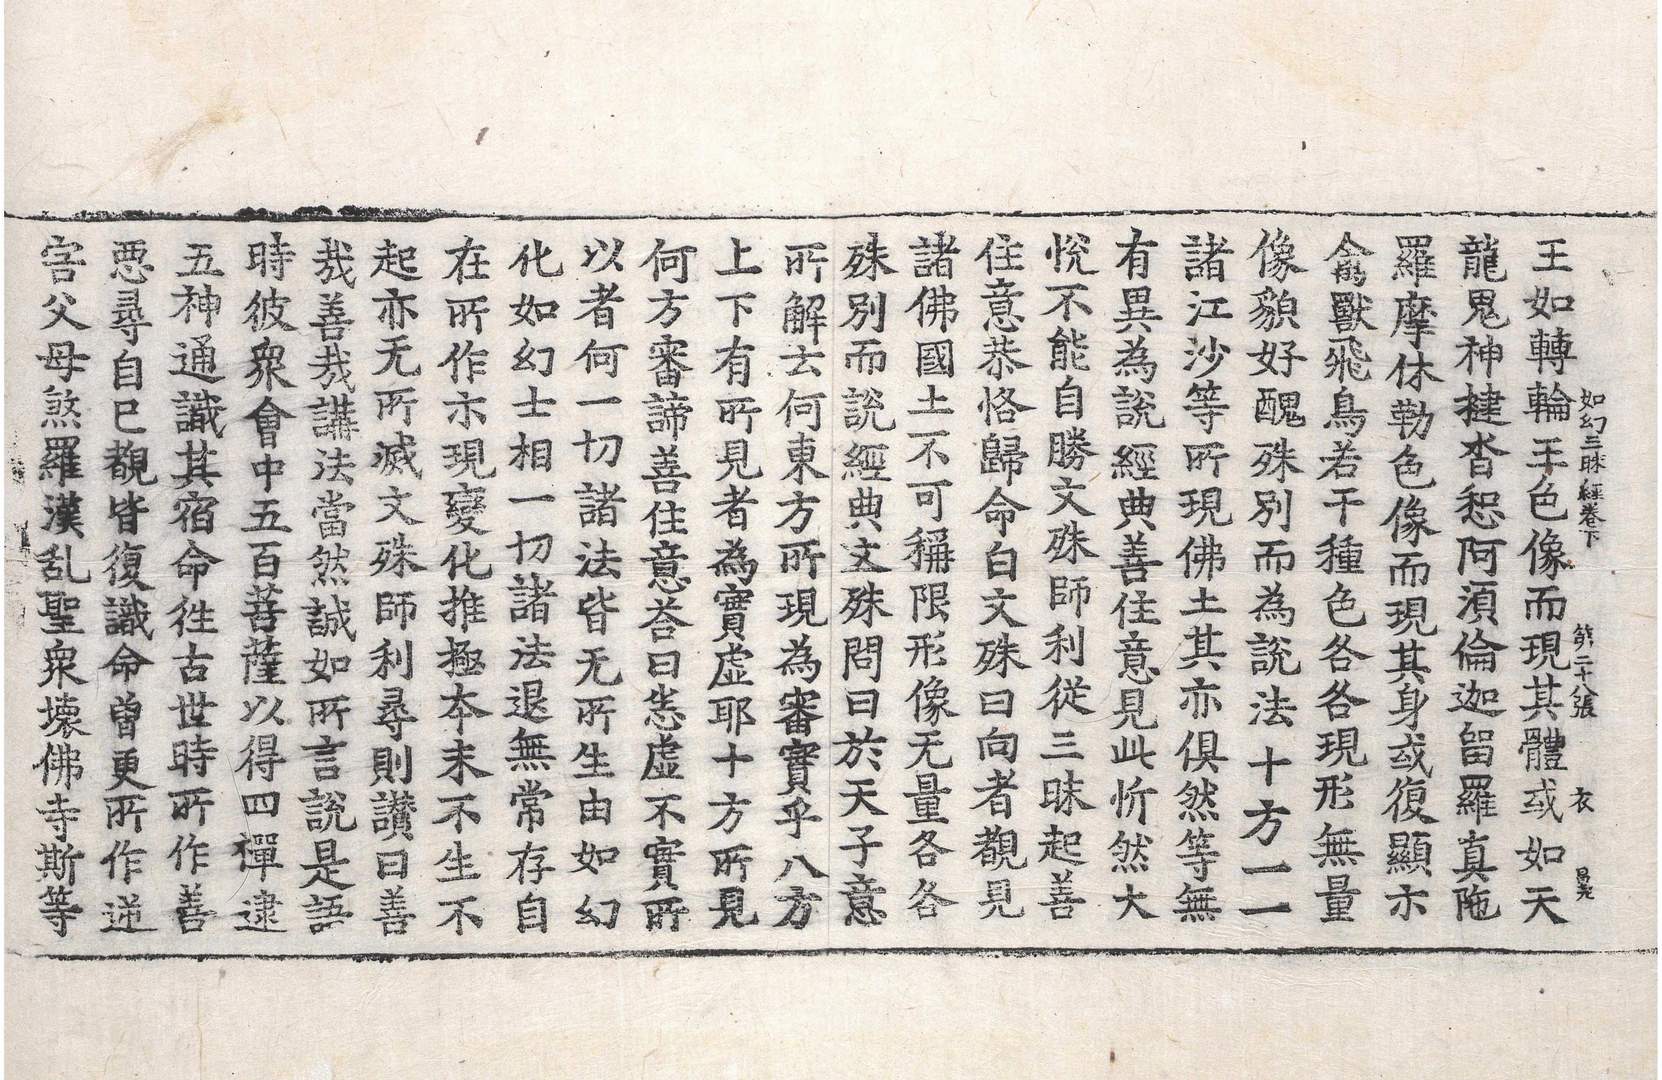 如幻三昧經卷下 第二十八張 衣
王如轉輪王色像而現其體或如天
龍鬼神揵沓惒阿須倫迦留羅真陁
羅摩休勒色像而現其身或復顯示
禽獸飛鳥若干種色各各現形無量
像貌好醜殊別而為說法十方一一
諸江沙等所現佛土其亦俱然等無
有異為說經典善住意見此忻然大
恱不能自勝文殊師利從三昧起善
住意恭恪歸命白文殊曰向者覩見
諸佛國土不可稱限形像无量各各
殊別而說經典文殊問曰於天子意
所解云何東方所現為審實乎八方
上下有所見者為實虛耶十方所見
何方審諦善住意荅曰悉虛不實所
以者何一切諸法皆无所生由如幻
化如幻士相一切諸法退無常存自
在所作示現變化推極夲末不生不
起亦无所滅文殊師利尋則讃曰善
㢤善㢤講法當然誠如所言說是語
時彼衆會中五百菩薩以得四禪逮
五神通識其宿命徃古世時所作善
惡尋自已覩皆復識命曽更所作逆
害父母煞羅漢乱聖衆壞佛寺斯等